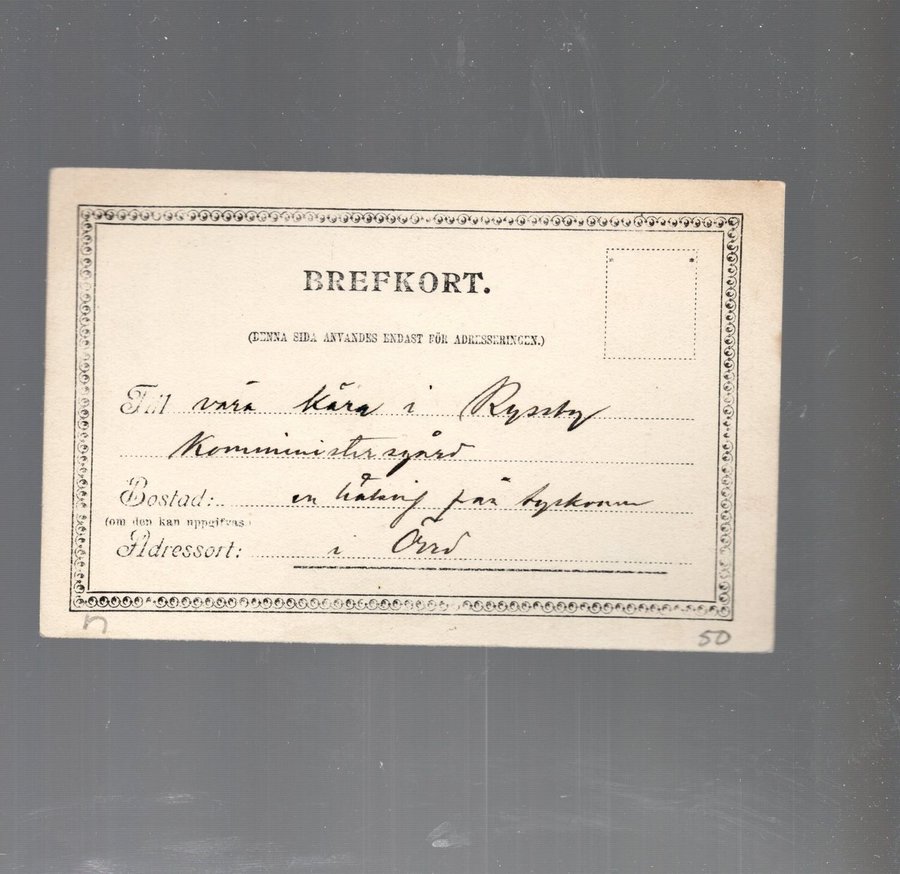 BREFKORT.
(DENNA SIDA ANVANDES ENDAST FÖR ADRESSERINGEN.)
Till våra kära i Ryssby
Komministersgård
Bostad: en hälsning från
(om den kan uppgifvas)
Adressort: i
50